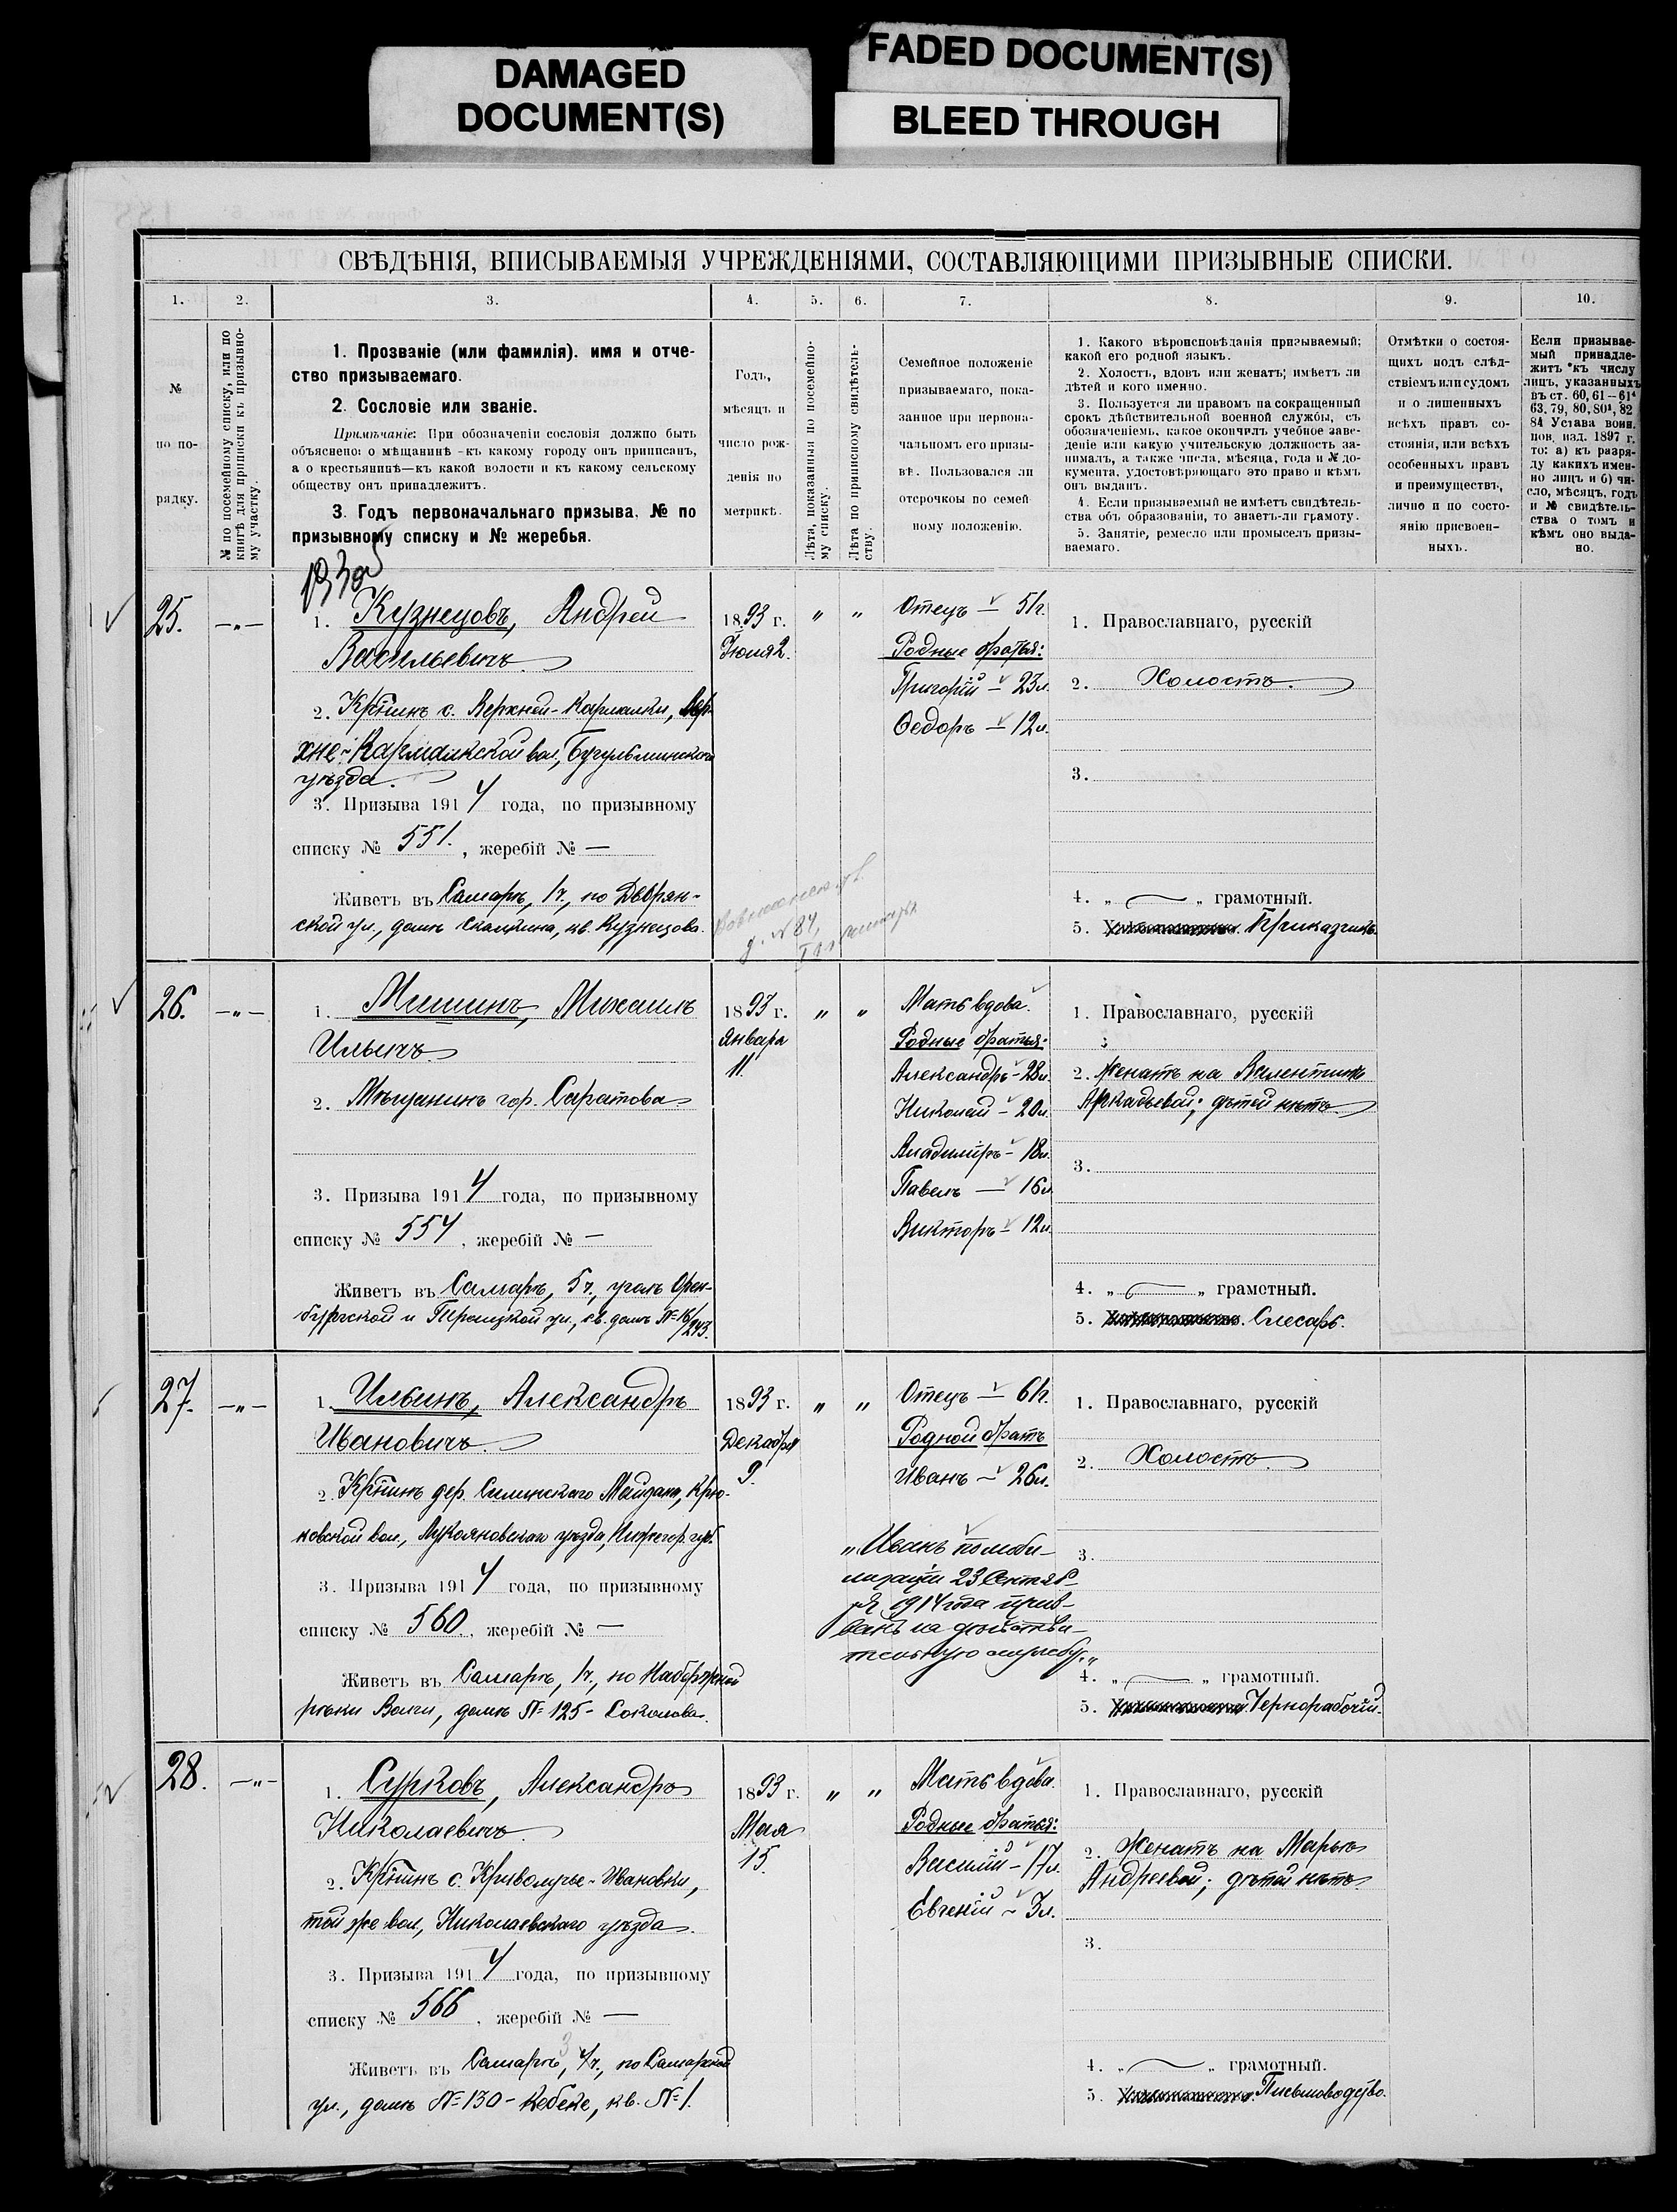 DAMAGED
DOCUMENT(S)
FADED DOCUMENT(S)
BLEED THROUGH
СВѢДѢНІЯ, ВПИСЫВАЕМЫЯ УЧРЕЖДЕНІЯМИ, СОСТАВЛЯЮЩИМИ ПРИЗЫВНЫЕ СПИСКИ.
1. 2. 3. 4. 5. 6. 7. 8. 9. 10.
№
по по-
рядку.
№ по посемейному списку, или по
книгѣ для приписки къ призывно-
му участку.
1. Прозваніе (или фамилія). имя и отче-
ство призываемаго.
2. Сословіе или званіе.
Примѣчаніе: При обозначеніи сословія должно быть
объяснено: о мѣщанинѣ -къ какому городу онъ приписанъ,
а о крестьянинѣ—къ какой волости и къ какому сельскому
обществу онъ принадлежитъ.
3. Годъ первоначальнаго призыва, № по
призывному списку и № жеребья.
Годъ,
мѣсяцъ и
число рож-
денія по
метрикѣ.
Лѣта, показанныя по посемейно-
му списку.
Лѣта по приписному свидѣтель-
ству.
Семейное положеніе
призываемаго, пока-
занное при первона-
чальномъ его призы-
вѣ. Пользовался ли
отсрочкою по семей
ному положенію.
1. Какого вѣроисповѣданія призываемый;
какой его родной языкъ.
2. Холостъ, вдовъ или женатъ; имѣетъ ли
дѣтей и кого именно.
3. Пользуется ли правомъ на сокращенный
срокъ дѣйствительной военной службы, съ
обозначеніемъ, какое окончилъ учебное заве-
деніе или какую учительскую должность за-
нималъ, а также числа, мѣсяца, года и № до-
кумента, удостовѣряющаго это право и кѣмъ
онъ выданъ.
4. Если призываемый не имѣетъ свидѣтель-
ства объ образованіи, то знаетъ-ли грамоту.
5. Занятіе, ремесло или промыселъ призы-
ваемаго.
Отмѣтки о состоя-
щихъ подъ слѣд-
ствіемъ или судомъ
и о лишенныхъ
всѣхъ правъ со-
стоянія, или всѣхъ
особенныхъ правъ
и преимуществъ,
лично и по состо-
янію присвоен-
ныхъ.
Если призывае-
мый принадле-
житъ къ числу
лицъ, указанныхъ
въ ст. 60, 61—61⁴
63, 79, 80, 80¹, 82
84 Устава воин.
пов. изд. 1897 г.
то: а) къ разря-
ду какихъ имен-
но лицъ и б) чи-
сло, мѣсяцъ, годъ
и № свидѣтель-
ства о томъ и
кѣмъ оно выда-
но.
25. —„—
1. Кузнецовъ, Андрей
Васильевичъ
2. Кр̃нинъ с. Верхней-Кармалки, Вер-
хне-Кармалкской вол., Бугульминскаго
уѣзда.
3. Призыва 1914 года, по призывному
списку № 551., жеребій № —
Живетъ въ Самарѣ, 1ч., по Дворян-
ской ул., домъ Скалкина, кв. Кузнецова.
1893 г.
Іюля 2.
„ „
Отецъ — 51г.
Родные братья:
Григорій — 23л.
Ѳедоръ — 12л.
1. Православнаго, русскій
2. Холостъ.
3.
4. „ — „ грамотный.
5. Приказчикъ.
д. № 84,
26. —„—
1. Мишинъ, Михаилъ
Ильичъ
2. Мѣщанинъ гор. Саратова
3. Призыва 1914 года, по призывному
списку № 554, жеребій № —
Живетъ въ Самарѣ, 5ч., уголъ Орен-
бургской и Троицкой ул., св. домъ № 16/243.
1893 г.
Января
11.
„ „
Мать вдова.
Родные братья:
Александръ — 28л.
Николай — 20л.
Владиміръ — 18л.
Павелъ — 16л.
Викторъ — 12л.
1. Православнаго, русскій
2. Женатъ на Валентинѣ
Аркадьевой; дѣтей нѣтъ
3.
4. „ — „ грамотный.
5. Слесарь.
27. —„—
1. Ильинъ, Александръ
Ивановичъ
2. Кр̃нинъ дер. Силинскаго Майдана, Крю-
ковской вол., Лукояновскаго уѣзда, Нижегор. губ.
3. Призыва 1914 года, по призывному
списку № 560., жеребій № —
Живетъ въ Самарѣ, 1ч., по Набережной
рѣки Волги, домъ № 125 - Соколова.
1893 г.
Декабря
9.
„ „
Отецъ — 61г.
Родной братъ
Иванъ — 26л.
„Иванъ по моби-
лизаціи 23 Сентяб-
ря 1914 года приз-
ванъ на дѣйстви-
тельную службу.„
1. Православнаго, русскій
2. Холостъ.
3.
4. „ — „ грамотный.
5. Чернорабочій.
28. —„—
1. Сурковъ, Александръ
Николаевичъ
2. Кр̃нинъ с. Криволучье-Ивановки,
той же вол., Николаевскаго уѣзда
3. Призыва 1914 года, по призывному
списку № 566, жеребій № —
Живетъ въ Самарѣ, 4ч., по Самарской
ул., домъ № 130 - Кебеке, кв. № 1.
1893 г.
Мая
15.
„ „
Мать вдова.
Родные братья:
Василій — 17л.
Евгеній — 3л.
1. Православнаго, русскій
2. Женатъ на Марьѣ
Андреевой; дѣтей нѣтъ
3.
4. „ — „ грамотный.
5. Письмоводство.